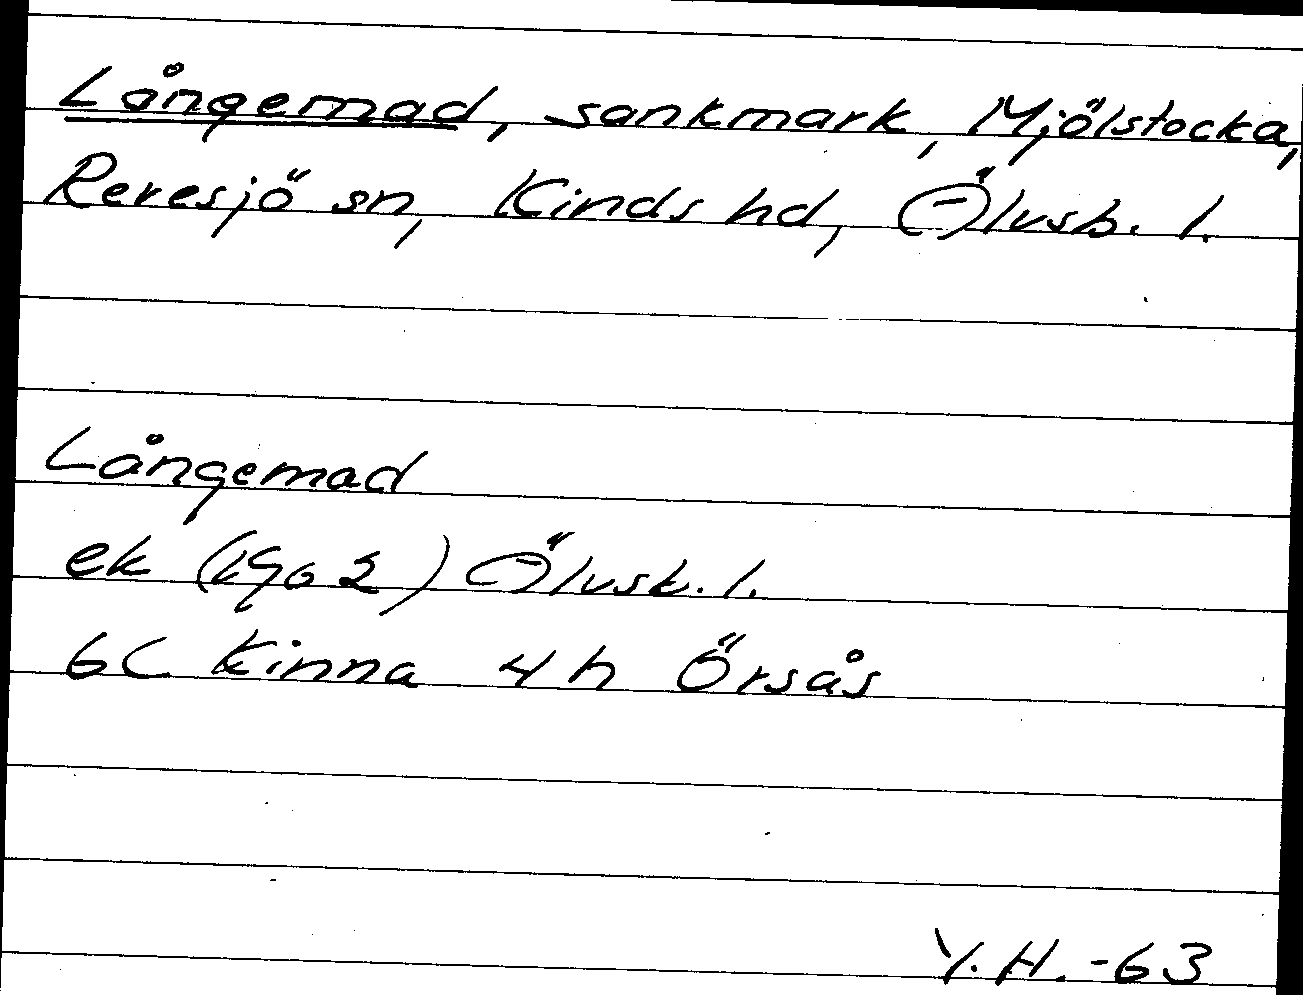 Långemad, sankmark, Mjölstocka,
Revesjö sn, Kinds hd, Älvsb. l.
Långemad
ek (1962) Älvsb. l.
6C Kinna 4h Örsås
Y.H. -63